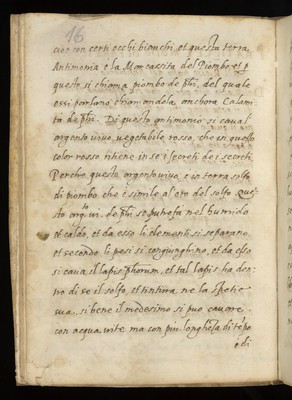 16
cioè con certi occhi bianchi, et questa terra
Antimonia è la Marcassita del Piombo, et p
questo si chiama piombo de phi, del quale
essi parlano chiamandola anchora Calami
ta de phi. Di questo antimonio si caua l
argento uiuo, uegetabile rosso, che in quello
color rosso ritiene in se i secreti de i secreti.
Perche questo argento uiuo, è la terra solfo
di piombo, che è simile al oro del solfo. Que
sto arg. ui. de phi se putrefa nel humido
et caldo, et da esso li elementi si separano,
et secondo li pesi si congiunghino, et da esso
si caua il lapis phorum, et tal lapis ha den
tro di se il solfo, et tintura ne la spetie
sua, si bene il medesimo si puo cauare
con acqua uite ma con piu longhezza di tepo
è di